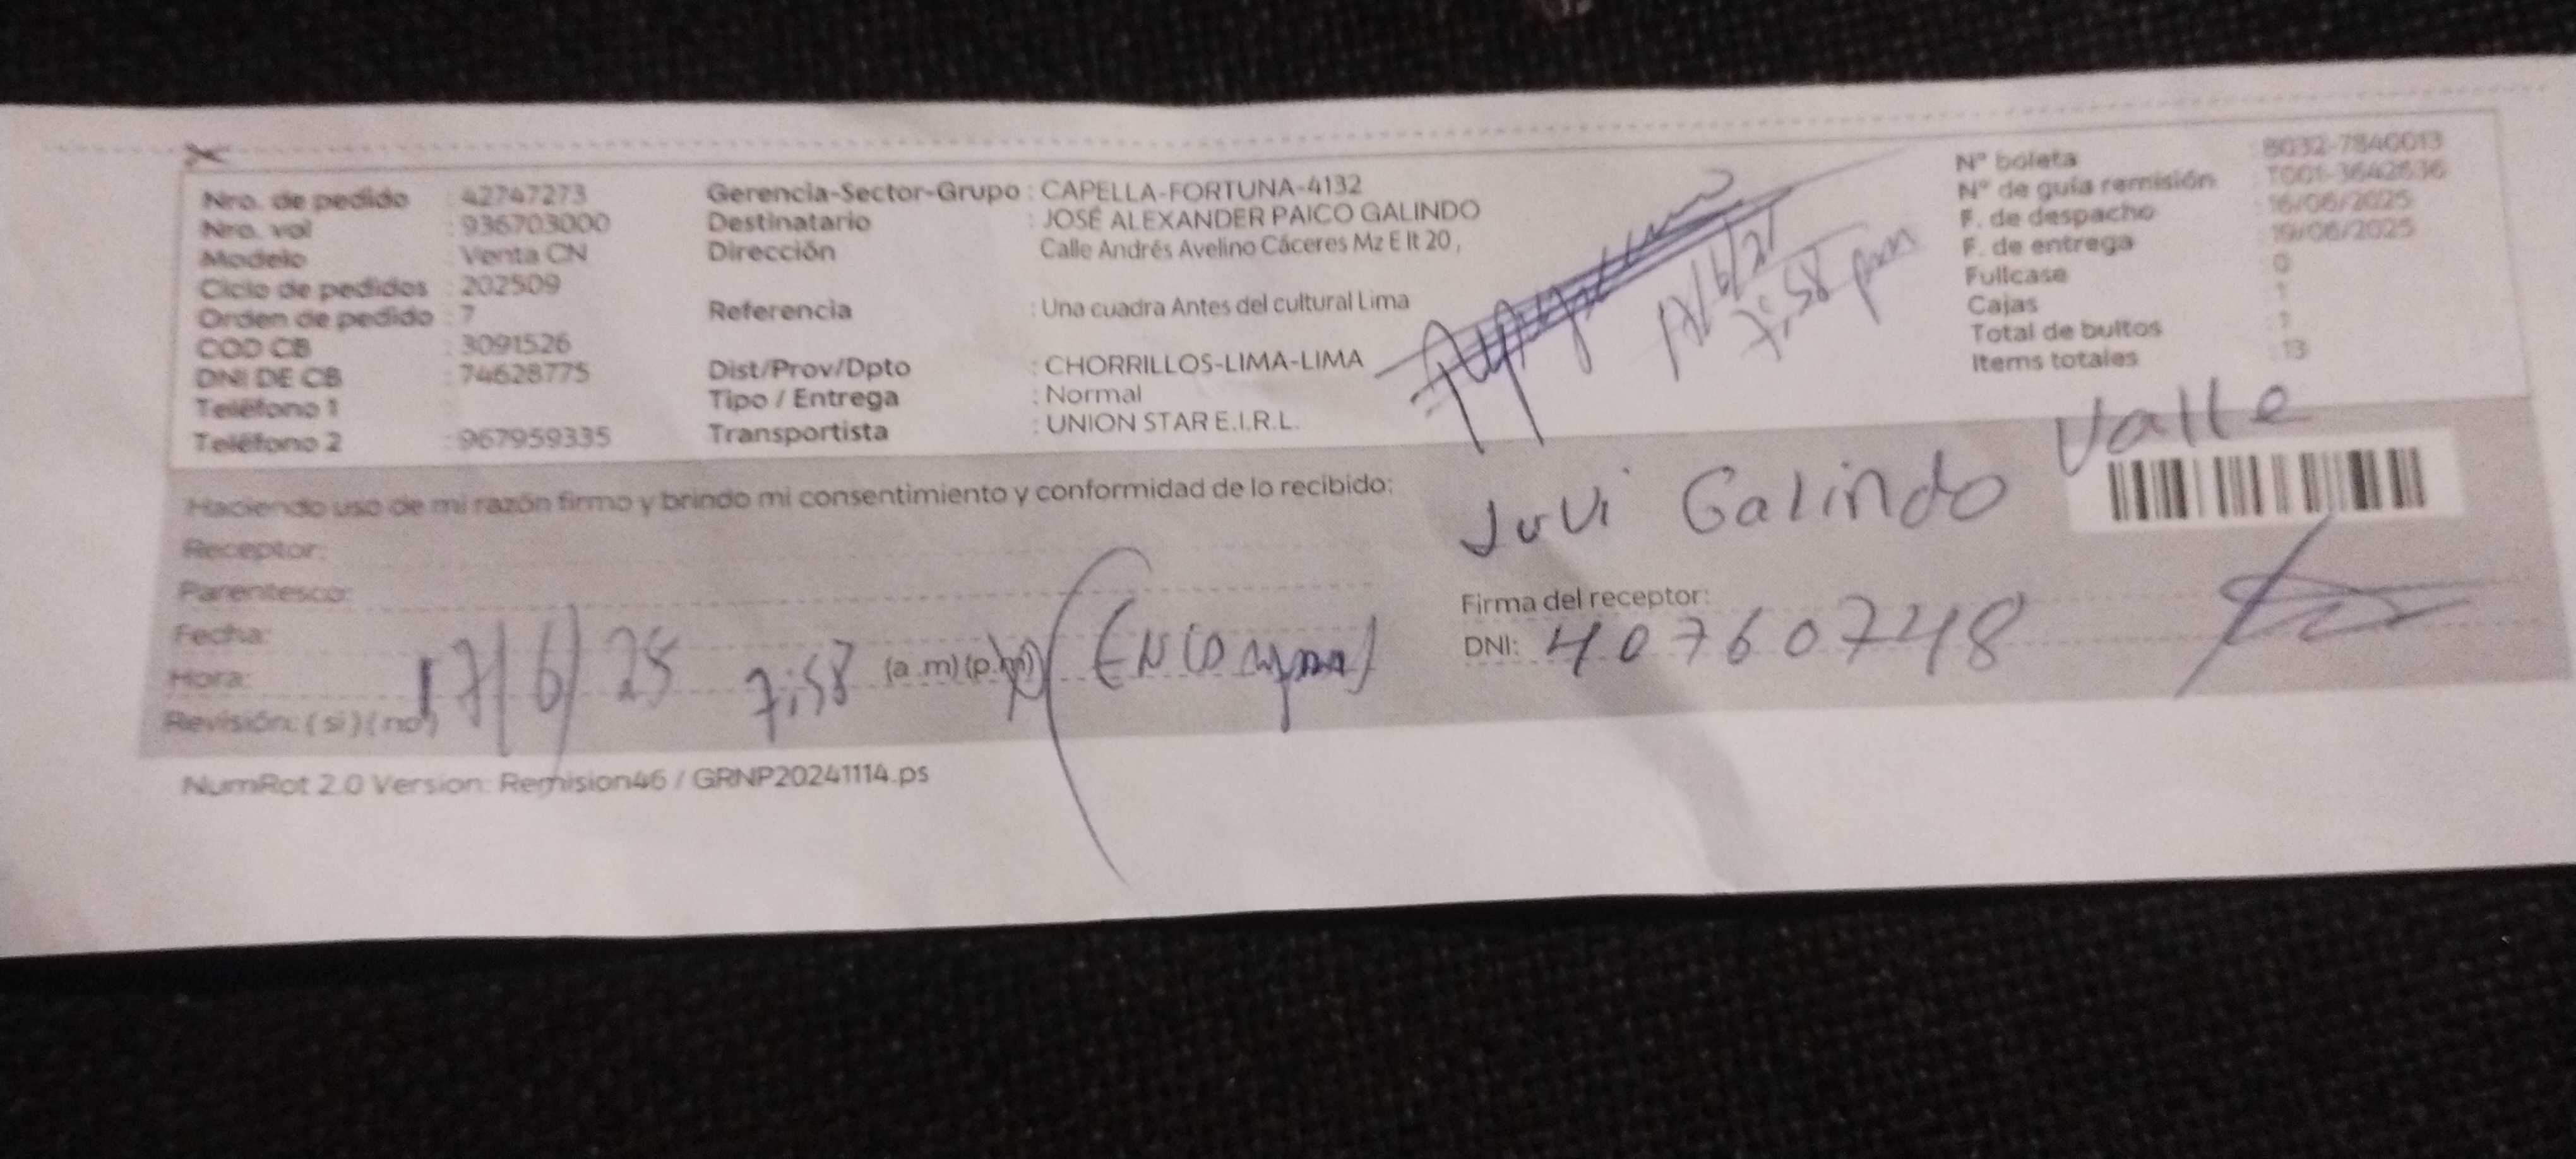 Nro. de pedido : 42747273
Nro. val : 936703000
Modelo : Venta CN
Ciclo de pedidos : 202509
Orden de pedido : 7
COD CB : 3091526
DNI DE CB : 74628775
Teléfono 1
Teléfono 2 : 967959335
Gerencia-Sector-Grupo : CAPELLA-FORTUNA-4132
Destinatario : JOSÉ ALEXANDER PAICO GALINDO
Dirección Calle Andrés Avelino Cáceres Mz E lt 20 ,
Referencia : Una cuadra Antes del cultural Lima
Dist/Prov/Dpto : CHORRILLOS-LIMA-LIMA
Tipo / Entrega : Normal
Transportista : UNION STAR E.I.R.L.
7:58 pm
N° boleta : B032-7840013
N° de guía remisión : T001-3642636
F. de despacho : 16/06/2025
F. de entrega : 19/06/2025
Fullcase : 0
Cajas : 1
Total de bultos : 1
Items totales : 13
Haciendo uso de mi razón firmo y brindo mi consentimiento y conformidad de lo recibido:
Receptor:
Parentesco:
Fecha:
Hora: 17/6/25 7:58 (a.m) (p.m)
Revisión: ( si ) ( no )
Juvi Galindo Valle
Firma del receptor:
DNI: 40760748
NumRot 2.0 Version: Remision46 / GRNP20241114.ps